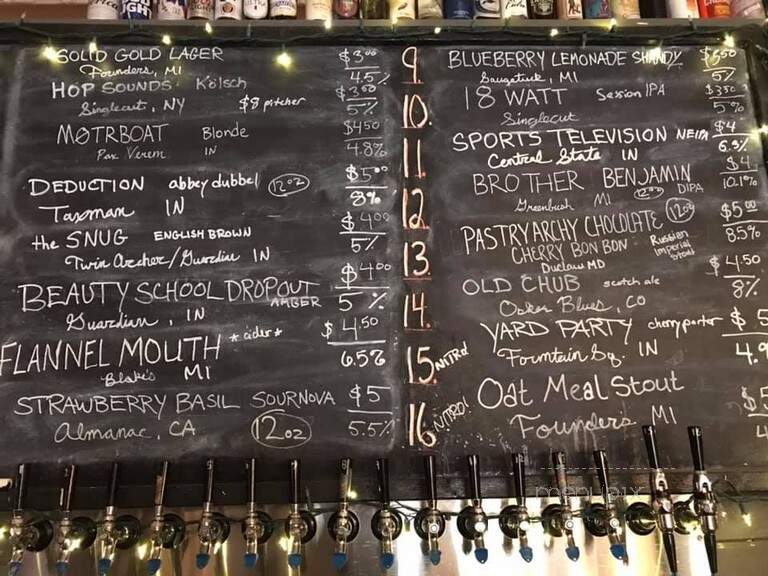 SOLID GOLD LAGER $3.00
Founders, MI 4.5%
HOP SOUNDS Kölsch $3.50
Singlecut, NY $8 pitcher 5%
MØTRBOAT Blonde $4.50
Pax Verum IN 4.8%
DEDUCTION abbey dubbel 12oz $5.00
Taxman IN 8%
the SNUG ENGLISH BROWN $4.00
Twin Archer/Guardian IN 5%
BEAUTY SCHOOL DROPOUT $4.00
AMBER 5%
Guardian, IN
FLANNEL MOUTH *cider* $4.50
Blake's MI 6.5%
STRAWBERRY BASIL SOURNOVA $5
Almanac, CA 12oz 5.5%
9. BLUEBERRY LEMONADE SHANDY $5.50
Saugatuck, MI 5%
10. 18 WATT Session IPA $3.50
Singlecut 5%
11. SPORTS TELEVISION NEIPA $4
Central State IN 6.3%
12. BROTHER BENJAMIN $4
Greenbush MI 12oz DIPA 10.1%
13. PASTRYARCHY CHOCOLATE 12oz $5.00
CHERRY BON BON Russian Imperial Stout 8.5%
Duclaw MD
14. OLD CHUB scotch ale $4.50
Oskar Blues, CO 8%
15. NITRO! YARD PARTY cherry porter $5
Fountain Sq. IN 4.9
16 NITRO! Oat Meal Stout $5
Founders MI 4